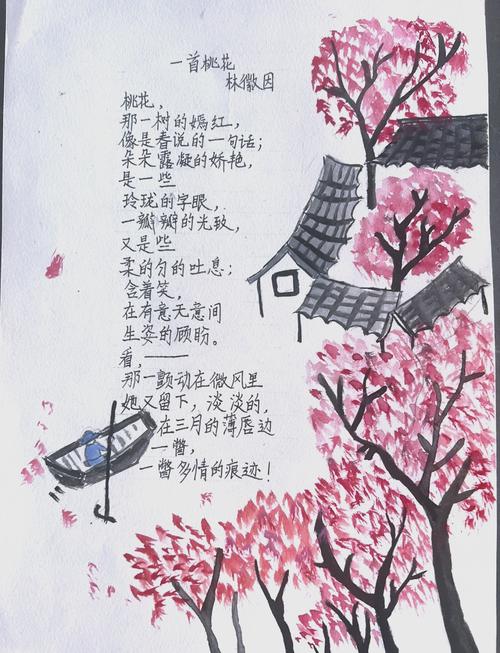 一首桃花
林徽因
桃花，
那一树的嫣红，
像是春说的一句话；
朵朵露凝的娇艳，
是一些
玲珑的字眼，
一瓣瓣的光致，
又是些
柔的匀的吐息；
含着笑，
在有意无意间
生姿的顾盼。
看，——
那一颤动在微风里
她又留下，淡淡的，
在三月的薄唇边
一瞥，
一瞥多情的痕迹！